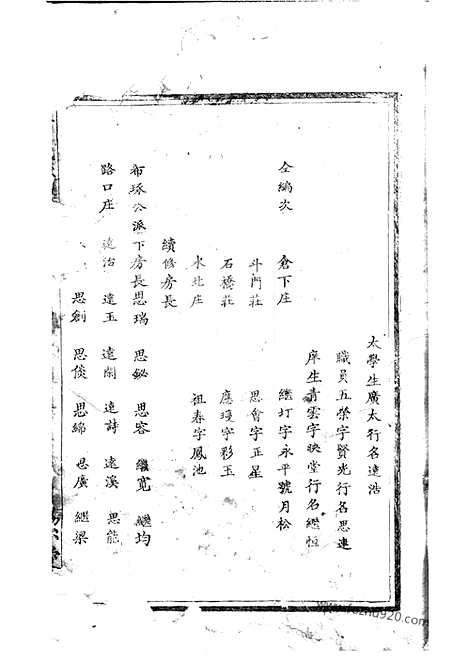 太學生廣太行名達浩
職員五榮字賢光行名思連
庠生青雲字映堂行名繼恒
仝編次 倉下庄 繼灯字永平號月松
斗門莊 思會字正星
石橋莊 應瑗字彩玉
水北庄 祖春字鳳池
續修房長
布琢公派下房長思瑞 思鉍 思容 繼寬 繼均
路口庄 遠治 遠玉 遠閑 遠詩 遠溪 思能
思創 思倓 思綿 思廣 繼梁
www.fozhu920.com